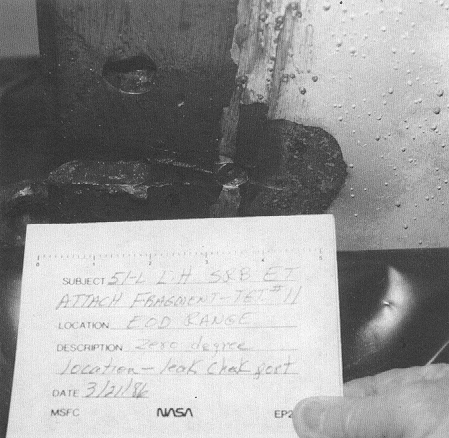 0 1 2 3 4 5
SUBJECT 51-L L·H SRB ET
ATTACH FRAGMENT-TET #11
LOCATION EOD RANGE
DESCRIPTION Zero degree
location - leak Check port
DATE 3/21/86
MSFC NASA EP2